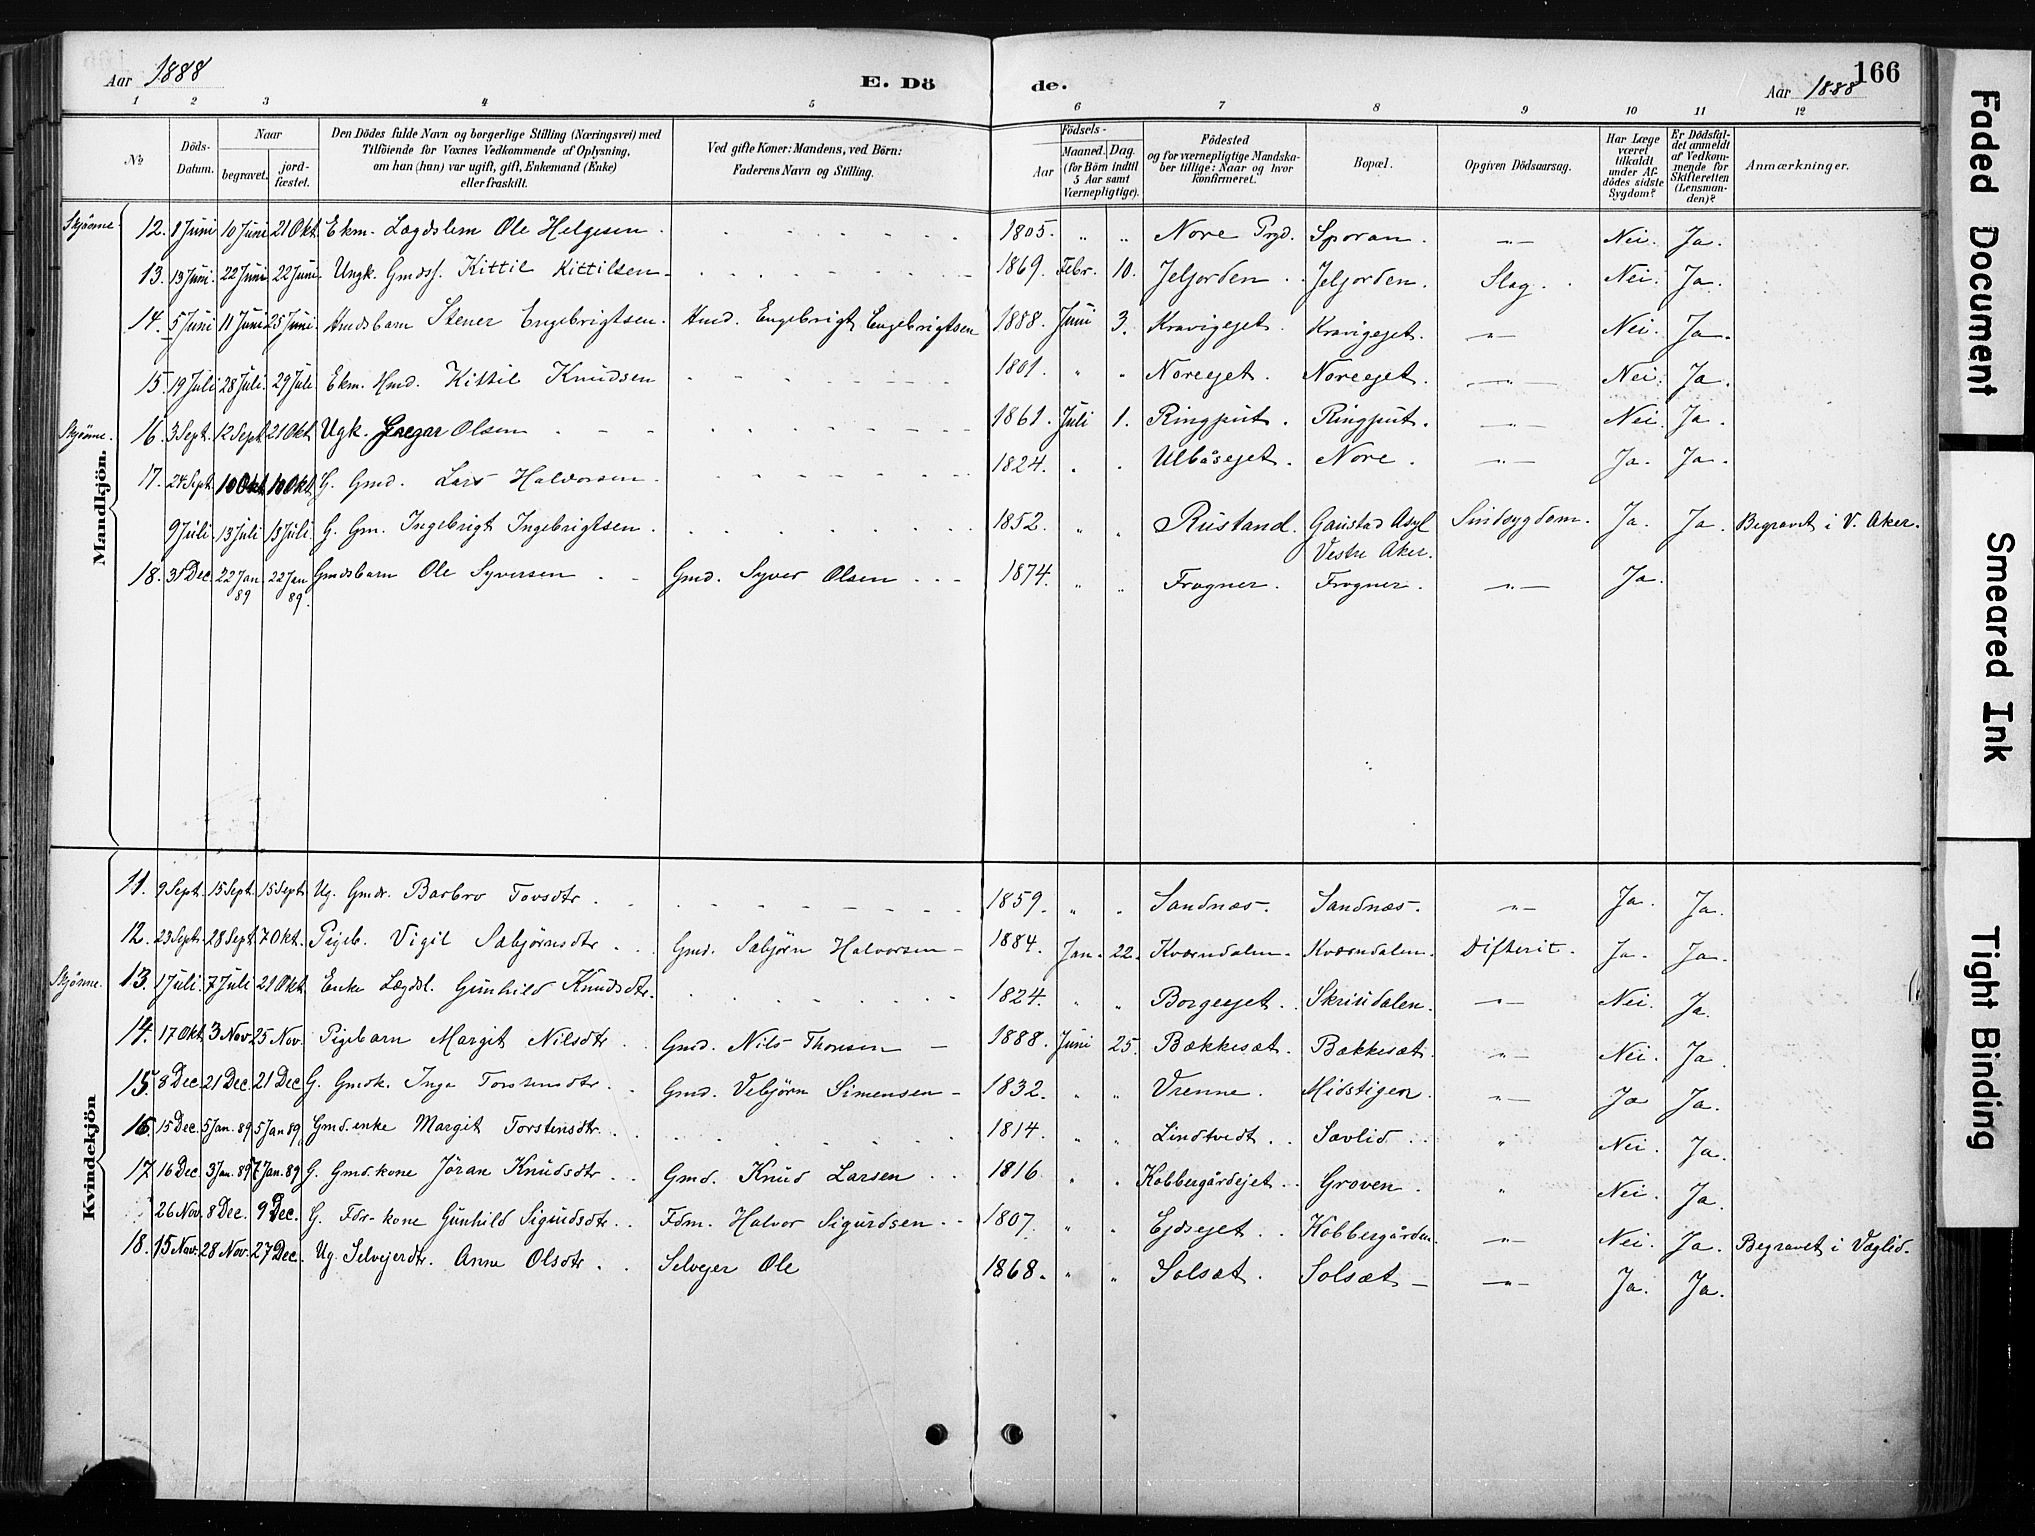 Aar 1888
E. Dö
de.
Aar 1888
166
1 2 3 4 5 6 7 8 9 10 11 12
№
Döds-
Datum.
Naar
begravet.
jord-
fæstet.
Den Dödes fulde Navn og borgerlige Stilling (Næringsvei) med
Tilföiende for Voxnes Vedkommende af Oplysning,
om han (hun) var ugift, gift, Enkemand (Enke)
eller fraskilt.
Ved gifte Koner: Mandens, ved Börn:
Faderens Navn og Stilling.
Födsels-
Aar
Maaned.
Dag
(for Börn indtil
5 Aar samt
Værnepligtige).
Födested
og for værnepligtige Mandska-
ber tillige: Naar og hvor
konfirmeret.
Bopæl.
Opgiven Dödsaarsag.
Har Læge
været
tilkaldt
under Af-
dödes sidste
Sygdom?
Er Dödsfal-
det anmeldt
af Vedkom-
mende for
Skifteretten
(Lensman-
den)?
Anmærkninger.
Mandkjön.
Skjönne 12. 8 Juni 10 Juni 21 Okt. Ekm. Lægdslem Ole Helgesen 1805. " " Nore Prgd. Sporan. —"— Nei. Ja.
13. 13 Juni 22 Juni 22 Juni Ungk. Gmdss. Kittil Kittilsen 1869. Febr. 10. Jeljorden. Jeljorden. Slag. Nei. Ja.
14. 5 Juni 11 Juni 25 Juni Hmdsbarn Stener Engebrigtsen. Hmd. Engebrigt Engebrigtsen 1888. Juni 3. Kravigejet. Kravigejet. —"— Nei. Ja.
15. 19 Juli 28 Juli. 29 Juli Ekm. Hmd. Kittil Knudsen 1801. " " Noreejet. Noreejet. —"— Nei. Ja.
Skjönne. 16. 3 Sept. 12 Sept. 21 Okt. Ugk. Gregar Olsen 1861. Juli 1. Ringput. Ringput. —"— Nei. Ja.
17. 24 Sept. 10 Okt. 10 Okt. G. Gmd. Lars Halvorsen 1824. " " Ulbåsejet. Nore. —"— Ja. Ja.
9 Juli 13 Juli 13 Juli. G. Gm. Ingebrigt Ingebrigtsen 1852. " " Rustand. Gaustad Asyl Sindsygdom. Ja. Ja. Begravet i V. Aker.
Vestre Aker.
18. 31 Dec. 22 Jan 89 22 Jan 89. Gmdsbarn Ole Syversen Gmd. Syver Olsen 1874. " " Frogner. Frogner. —"— Ja.
Kvindekjön
11. 9 Sept. 15 Sept. 15 Sept. Ug. Gmdr. Barbro Tovsdtr. 1859. " " Sandnæs. Sandnæs. —"— Ja. Ja.
12. 23 Sept. 28 Sept. 7 Okt. Pigeb. Vigil Sæbjørnsdtr. Gmd. Sæbjörn Halvorsen 1884. Jan. 22. Kværndalen. Kværndalen. Difterit. Ja. Ja.
Skjönne. 13. 1 Juli. 7 Juli 21 Okt. Enke Lægdsl. Gunhild Knudsdtr. 1824. " " Borgeejet. Skrindalen. —"— Nei. Ja.
14. 17 Okt. 3 Nov. 25 Nov. Pigebarn Margit Nilsdtr. Gmd. Nils Thorsen 1888. Juni 25. Bækkesæt. Bækkesæt. —"— Nei. Ja.
15. 8 Dec. 21 Dec. 21 Dec. G. Gmdk. Inga Torstensdtr. Gmd. Vebjörn Simensen 1832. " " Vrenne. Midstigen. —"— Ja Ja.
16. 15 Dec. 5 Jan. 89 5 Jan 89. Gmd.enke Margit Torstensdtr. 1814. " " Lindtvedt. Sævlid. " Nei. Ja.
17. 16 Dec. 3 Jan. 89 7 Jan. 89 G. Gmd.kone Jöran Knudsdtr Gmd. Knud Larsen 1816 " " Kobbergårdejet. Groven. " Nei. Ja.
26 Nov. 8 Dec. 9 Dec. G. Fdr-kone Gunhild Sigurdsdtr. Fdm. Halvor Sigurdsen 1807. " " Ejdsejet. Kobbergården. —"— Nei. Ja. Begravet i Væglid.
18. 15 Nov. 28 Nov. 27 Dec. Ug. Selvejerdtr. Anne Olsdtr. Selvejer Ole 1868. " " Solsæt. Solsæt —"— Ja. Ja.
Faded Document
Smeared Ink
Tight Binding